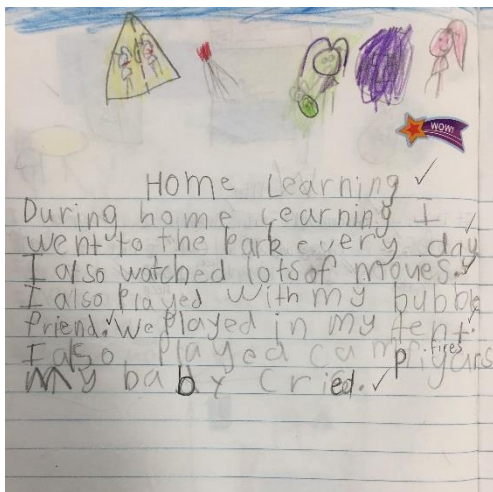 WOW!
Home Learning
During home Learning I
went to the park every day
I also watched lots of moves.
I also Played with my bubble
friend. We Played in my tent.
I also Played camp fires
My baby cried.